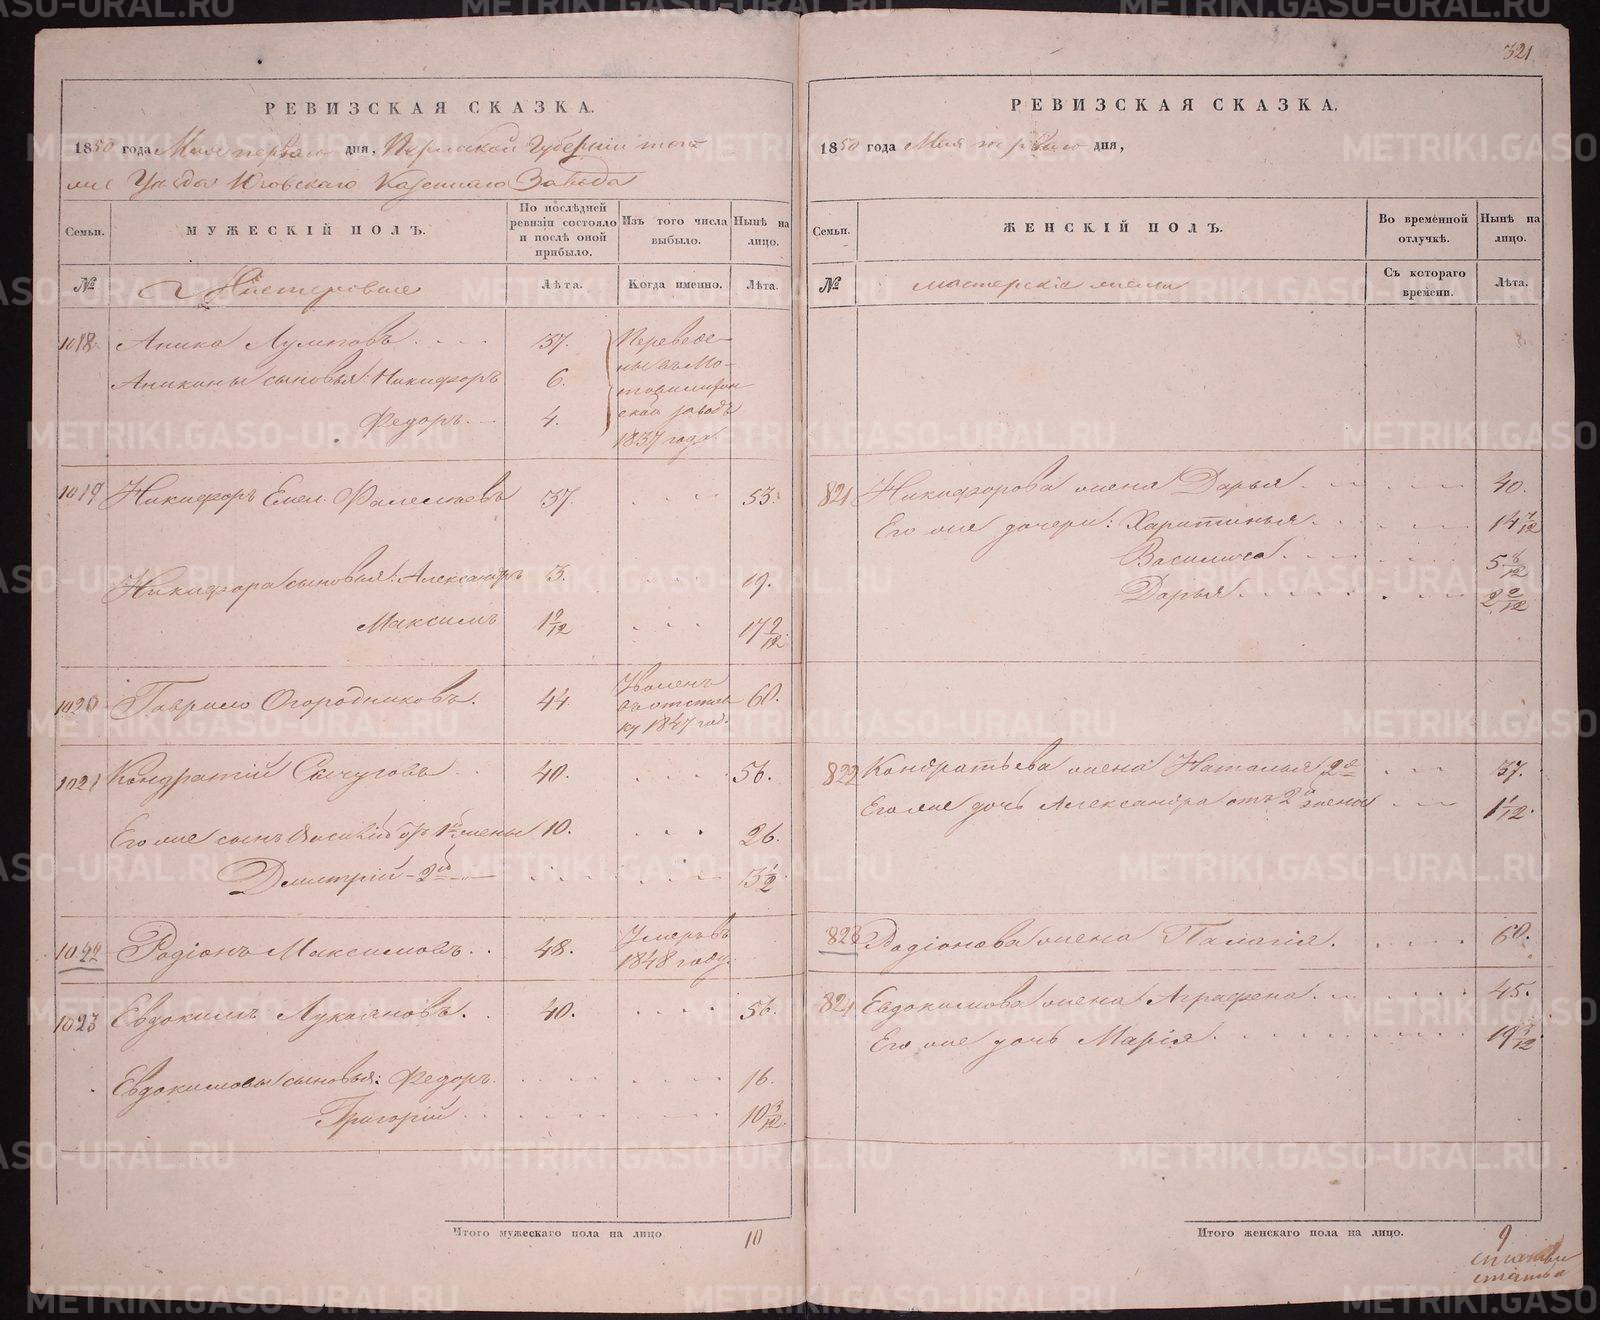 321
РЕВИЗСКАЯ СКАЗКА.
1850 года Мая перваго дня, Пермской Губерніи того
же Уѣзда Юговскаго Казеннаго Завода
Семьи.
МУЖЕСКІЙ ПОЛЪ.
По послѣдней ревизіи состояло и послѣ оной прибыло.
Изъ того числа выбыло.
Нынѣ на лицо.
№
Лѣта.
Когда именно.
Лѣта.
1018 Аника
37. Переведе-
ны въ Мо-
товилихин-
скій заводъ
1837 года
Аникины сыновья: Никифоръ 6.
Федоръ. 4.
1019 Никифоръ Емел. 37. 53.
Никифора сыновья: Александръ 3. 19.
Максимъ 1 2/12 17 2/12
1020 Гаврило Огородниковъ. 44. Уволенъ
въ отстав
ку 1847 год. 60.
1021 Кондратій 40. 56.
Его же сынъ Василій отъ 1й жены 10. 26.
Дмитрій - 2й 13 1/2
1022 Родіонъ Максимовъ. 48. Умеръ въ
1848 году.
1023 Евдокимъ Лукояновъ. 40. 56.
Евдокимовы сыновья: Федоръ. 16.
Григорій 10 3/12
Итого мужескаго пола на лицо 10
РЕВИЗСКАЯ СКАЗКА.
1850 года Мая перваго дня,
Семьи.
ЖЕНСКІЙ ПОЛЪ.
Во временной отлучкѣ.
Нынѣ на лицо.
№
мастерскіе жены
Съ котораго времени.
Лѣта.
821 Никифорова жена Дарья 40.
Его же дочери: Харитинья. 14 7/12
Василиса 5 8/12
Дарья. 2 2/12
822 Кондратьева жена Наталья 2я 37.
Его же дочь Александра отъ 2й жены 1 1/12.
823 Родіонова жена Палагія. 60.
824 Евдокимова жена Аграфена. 45.
Его же дочь Марія 19 3/12
Итого женскаго пола на лицо. 9
METRIKI.GASO-URAL.RU